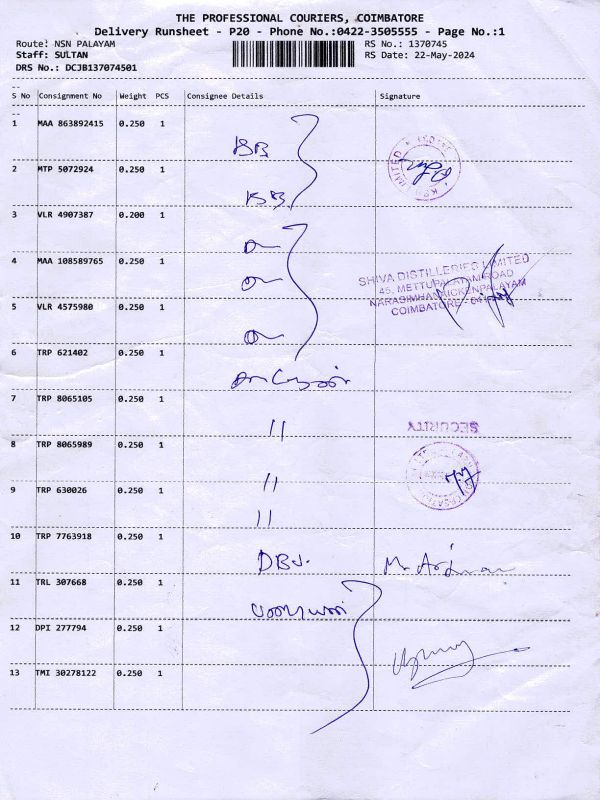 THE PROFESSIONAL COURIERS, COIMBATORE
Delivery Runsheet - P20 - Phone No.:0422-3505555 - Page No.:1
Route: NSN PALAYAM RS No.: 1370745
Staff: SULTAN RS Date: 22-May-2024
DRS No.: DCJB137074501
S No Consignment No Weight PCS Consignee Details Signature
1 MAA 863892415 0.250 1
2 MTP 5072924 0.250 1
3 VLR 4907387 0.200 1
4 MAA 108589765 0.250 1
SHIVA DISTILLERIES LIMITED
45, METTUPALAYAM ROAD
NARASIMHANAICKENPALAYAM
COIMBATORE
5 VLR 4575980 0.250 1
6 TRP 621402 0.250 1
7 TRP 8065105 0.250 1
"
SECURITY
8 TRP 8065989 0.250 1
"
9 TRP 630026 0.250 1
"
10 TRP 7763918 0.250 1
11 TRL 307668 0.250 1
12 DPI 277794 0.250 1
13 TMI 30278122 0.250 1